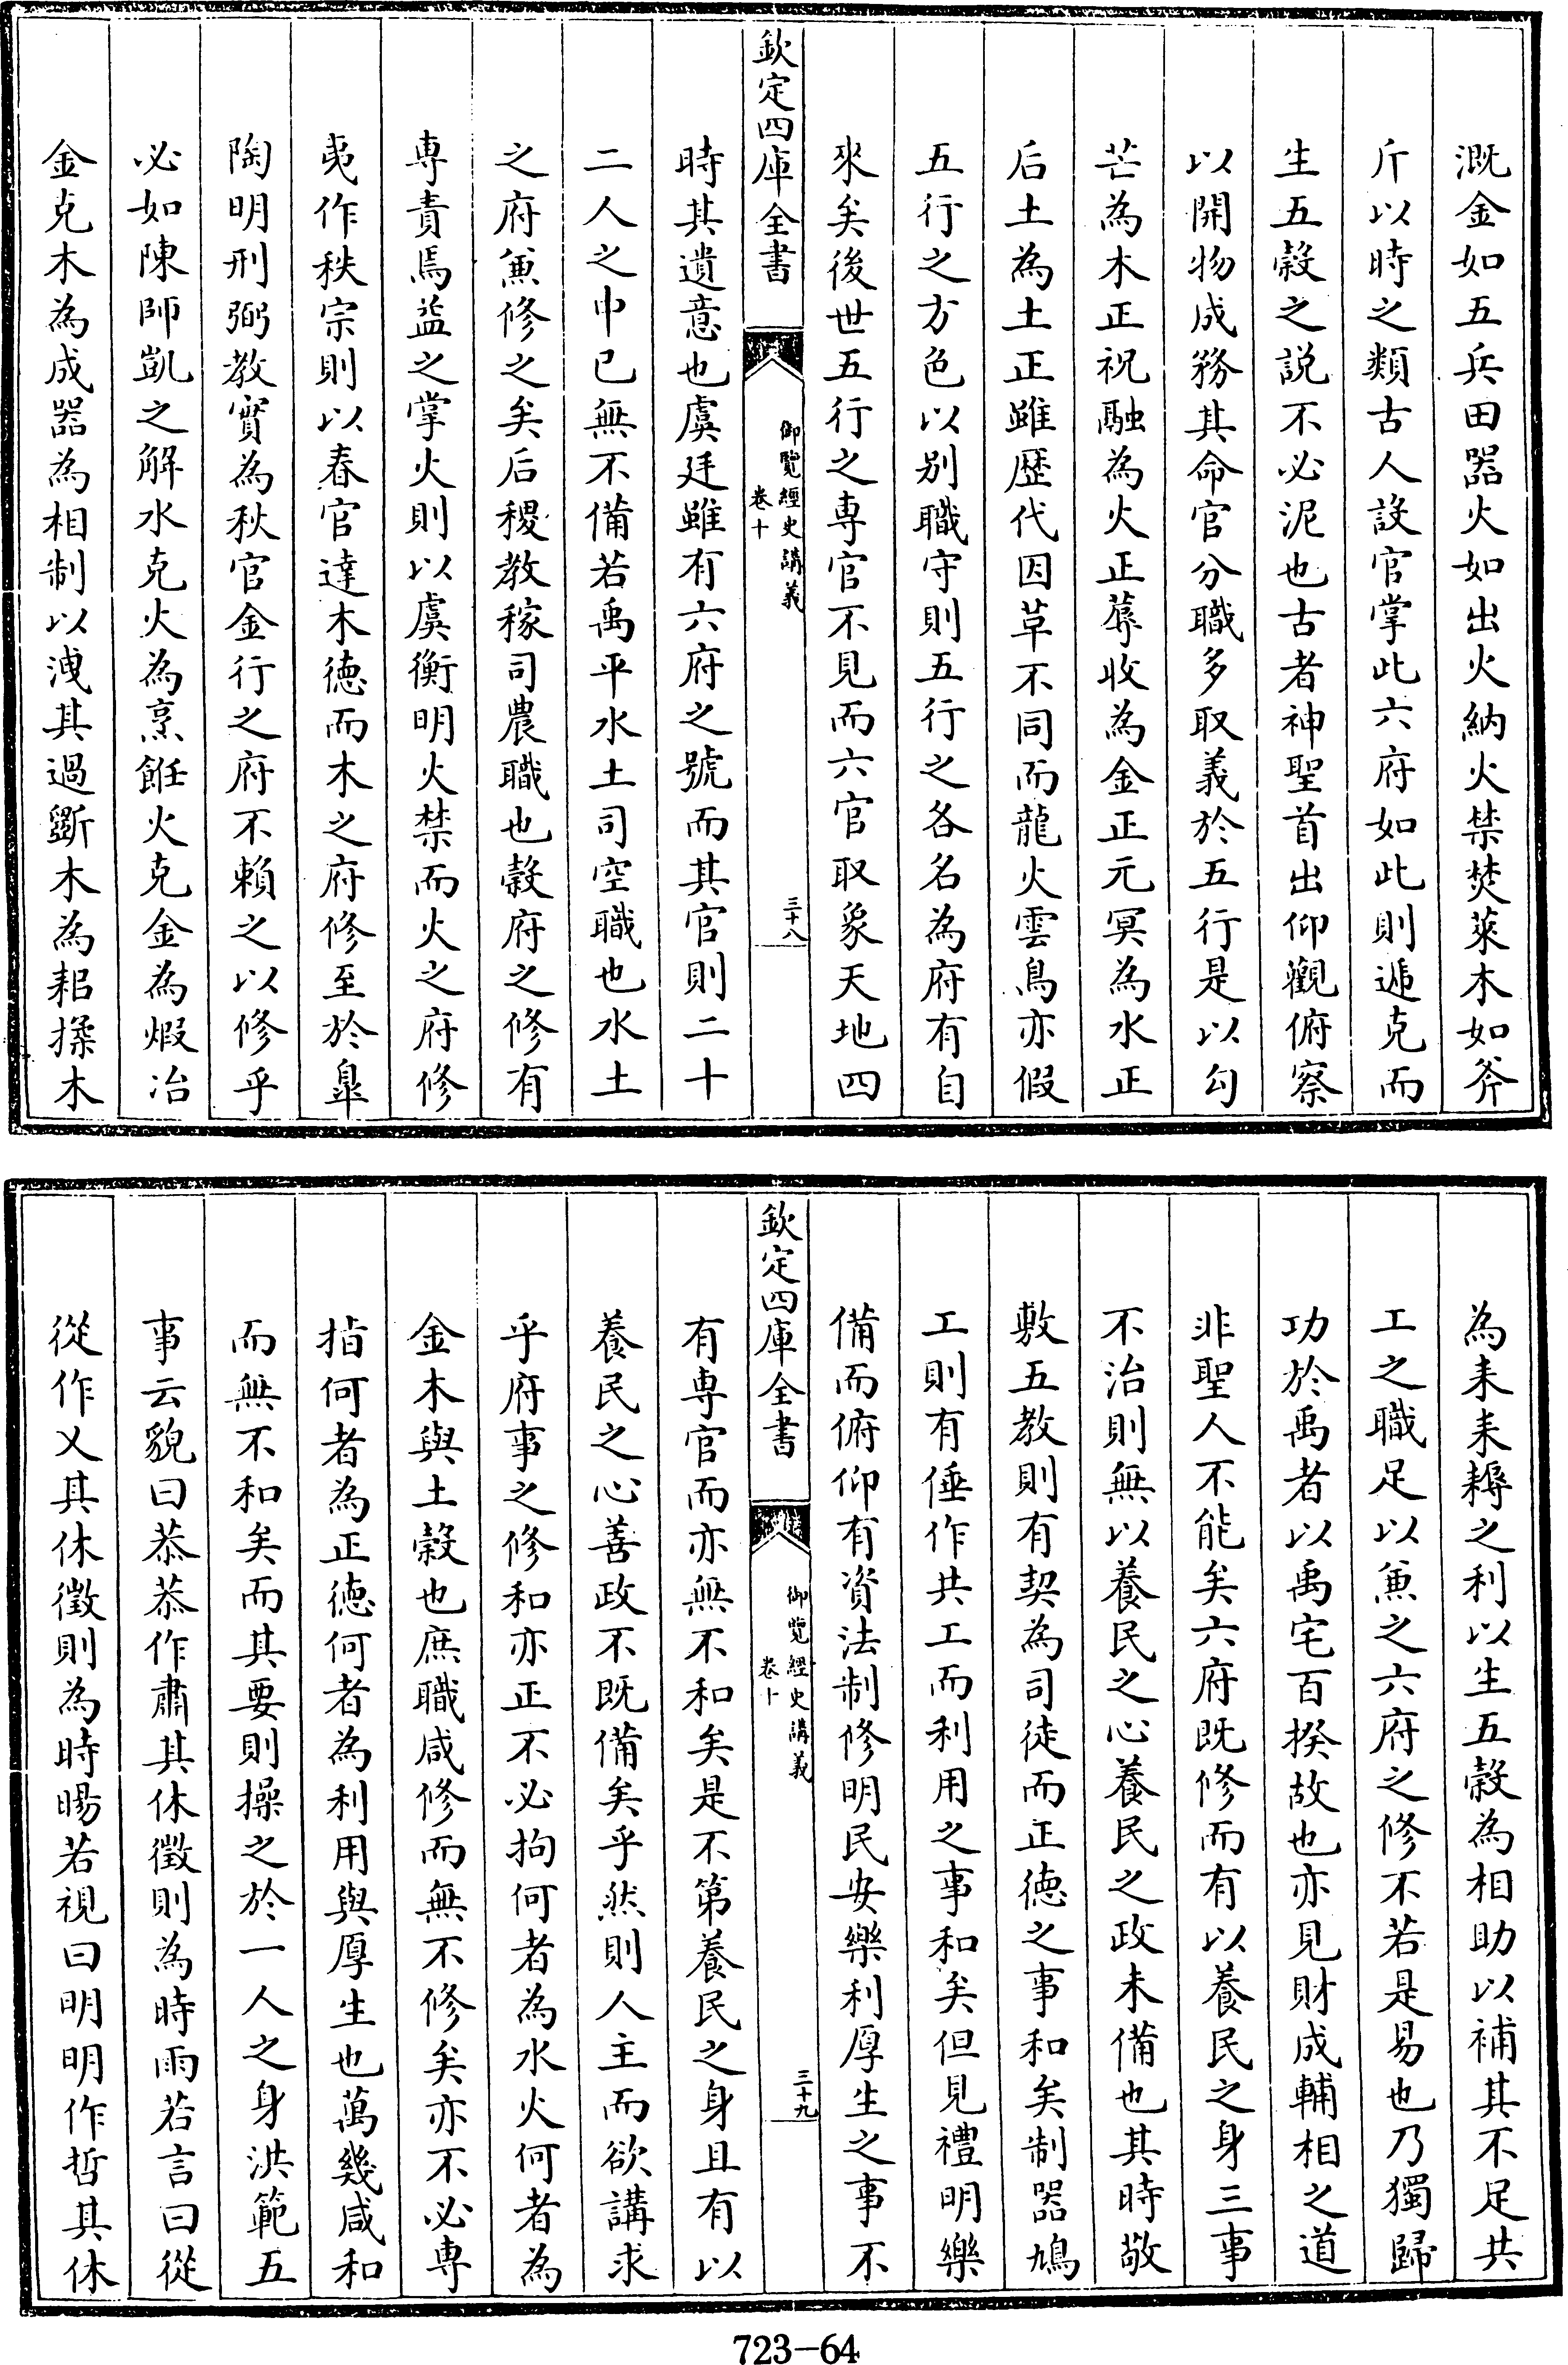 溉金如五兵田器火如出火納火禁焚萊木如斧
斤以時之類古人設官掌此六府如此則遞克而
生五穀之說不必泥也古者神聖首出仰觀俯察
以開物成務其命官分職多取義於五行是以勾
芒為木正祝融為火正蓐收為金正元冥為水正
后土為土正雖歴代因草不同而龍火雲鳥亦假
五行之方色以别職守則五行之各名為府有自
來矣後世五行之専官不見而六官取象天地四
欽定四庫全書
御覽經史講義
卷十
三十八
時其遺意也虞廷雖有六府之號而其官則二十
二人之中已無不備若禹平水土司空職也水土
之府兼修之矣后稷教稼司農職也穀府之修有
専責焉益之掌火則以虞衡明火禁而火之府修
夷作秩宗則以春官達木德而木之府修至於臯
陶明刑弼教實為秋官金行之府不賴之以修乎
必如陳師凱之解水克火為烹飪火克金為煅冶
金克木為成器為相制以洩其過斵木為耜揉木
為耒耒耨之利以生五穀為相助以補其不足共
工之職足以兼之六府之修不若是易也乃獨歸
功於禹者以禹宅百揆故也亦見財成輔相之道
非聖人不能矣六府既修而有以養民之身三事
不治則無以養民之心養民之政未備也其時敬
敷五教則有契為司徒而正德之事和矣制器鳩
工則有倕作共工而利用之事和矣但見禮明樂
備而俯仰有資法制修明民安樂利厚生之事不
欽定四庫全書
御覽經史講義
卷十
三十九
有専官而亦無不和矣是不第養民之身且有以
養民之心善政不既備矣乎然則人主而欲講求
乎府事之修和亦正不必拘何者為水火何者為
金木與土穀也庶職咸修而無不修矣亦不必専
指何者為正德何者為利用與厚生也萬幾咸和
而無不和矣而其要則操之於一人之身洪範五
事云貌曰恭恭作肅其休徵則為時雨若言曰從
從作乂其休徵則為時暘若視曰明明作哲其休
723-64